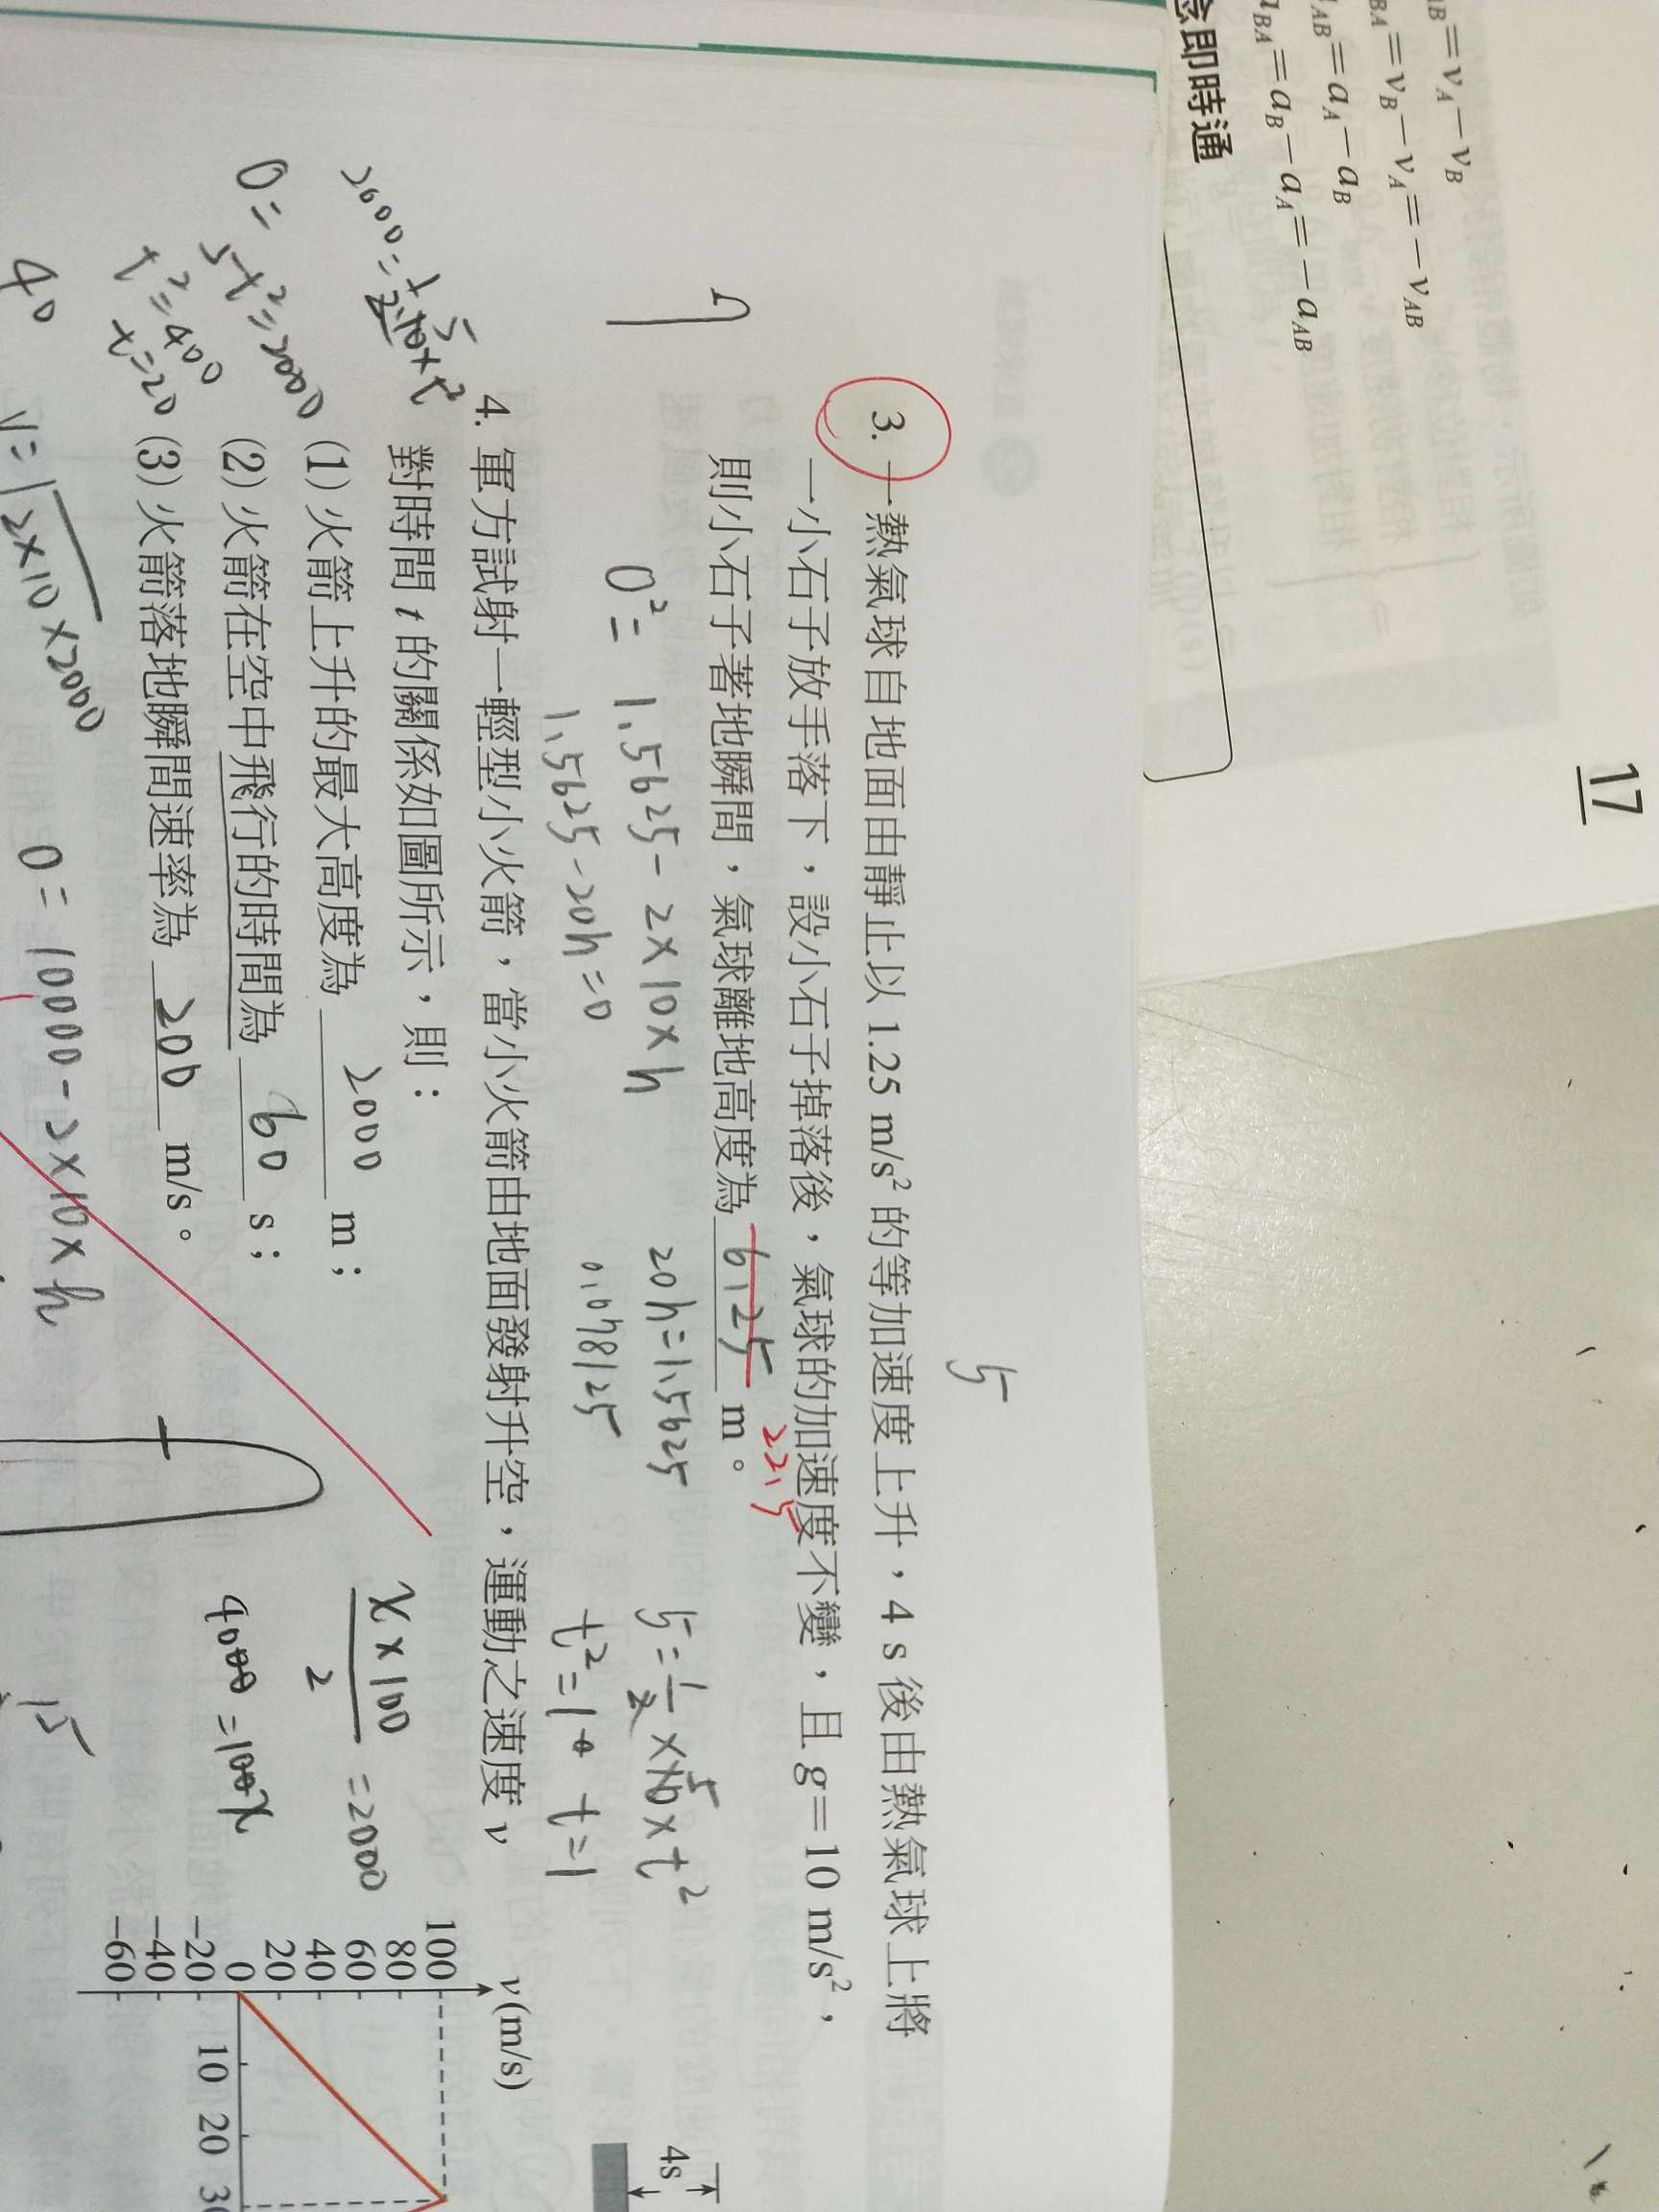 17
AB=vA-vB
BA=vB-vA=-vAB
AB=aA-aB
aBA=aB-aA=-aAB
念即時通
5
3. 一熱氣球自地面由靜止以 1.25 m/s² 的等加速度上升，4 s 後由熱氣球上將
一小石子放手落下，設小石子掉落後，氣球的加速度不變，且 g=10 m/s²，
則小石子著地瞬間，氣球離地高度為 6.125 m。
22.5
0²= 1.5625-2×10×h
1.5625-20h=0
20h=1.5625
0.078125
5=1/2×10×t²
5
t²=1 t=1
4s
4. 軍方試射一輕型小火箭，當小火箭由地面發射升空，運動之速度 v
對時間 t 的關係如圖所示，則：
(1) 火箭上升的最大高度為 2000 m；
(2) 火箭在空中飛行的時間為 60 s；
(3) 火箭落地瞬間速率為 200 m/s。
2000=1/2·10×t²
5
0=
5t²=2000
t²=400
t=20
40
v=√2×10×2000
0=10000-2×10×h
x×100/2=2000
4000=100x
15
v(m/s)
100
80
60
40
20
0
-20
-40
-60
10 20 30